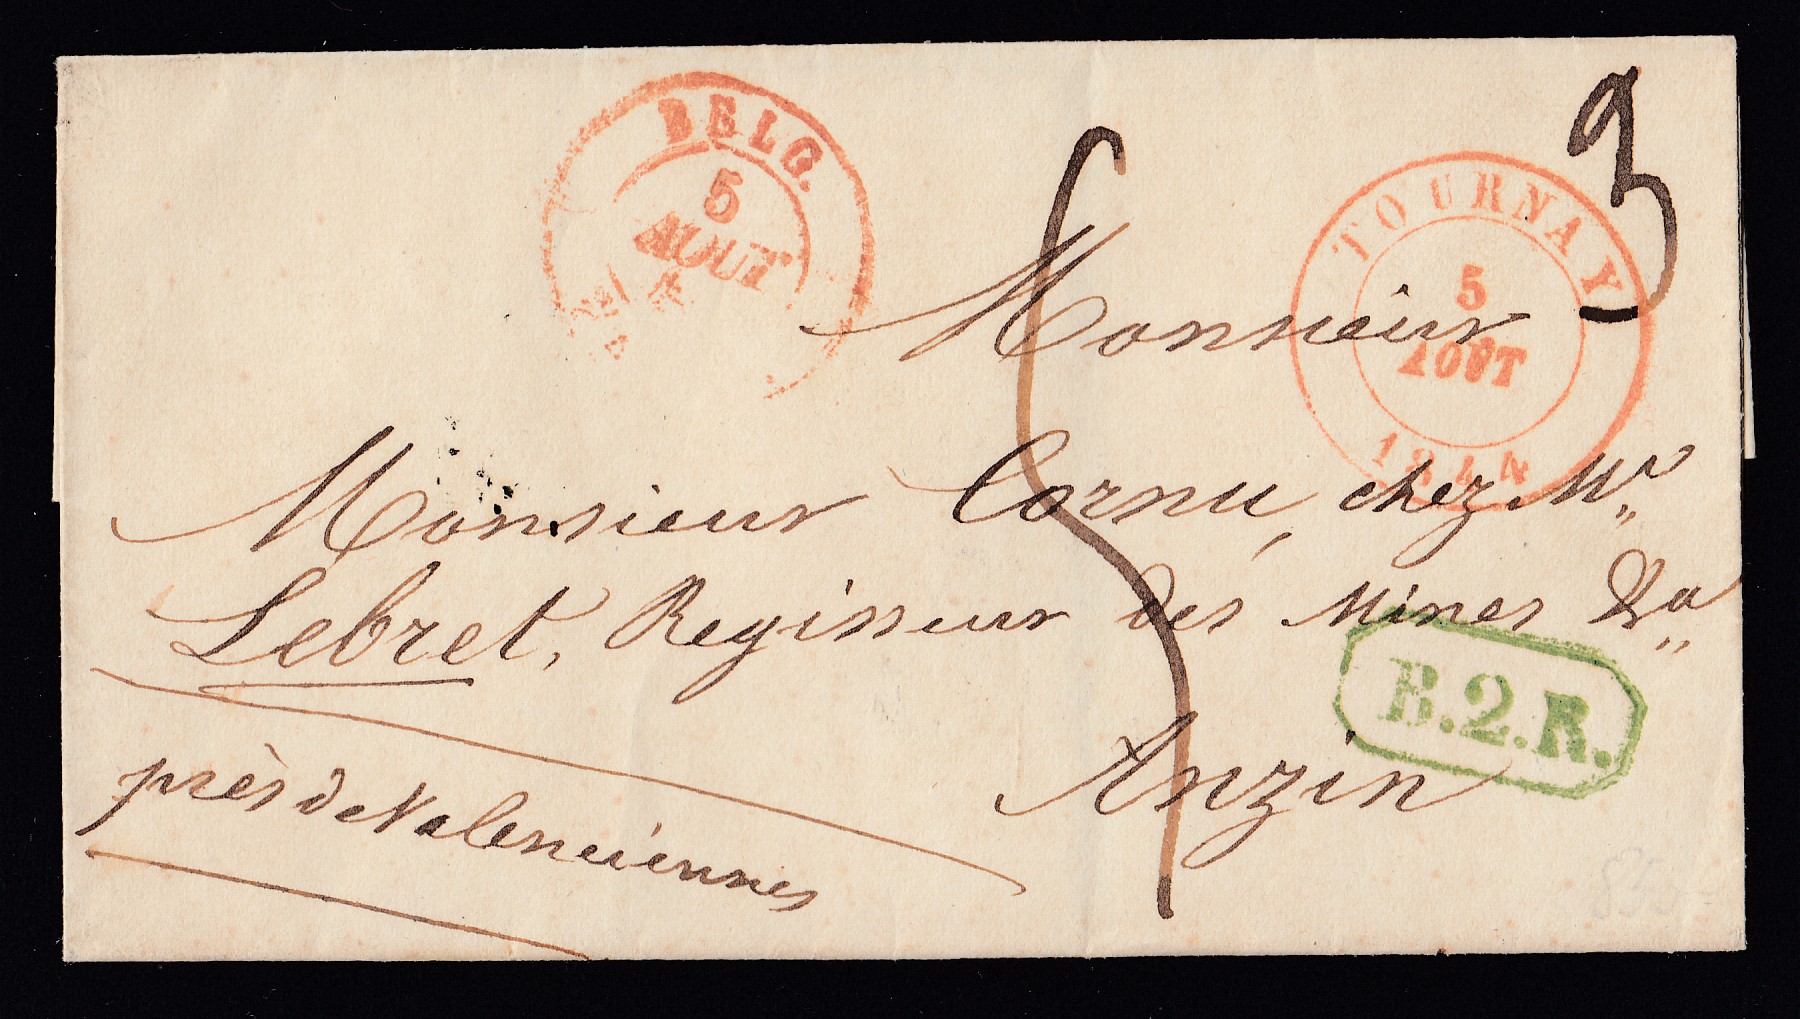 BELG.
5
AOUT
TOURNAY
5
AOUT
1844
3
Monsieur
Monsieur Cornu, chez Mr
Lebret, Regisseur des Mines &a
B.2.R.
Anzin
près de Valenciennes